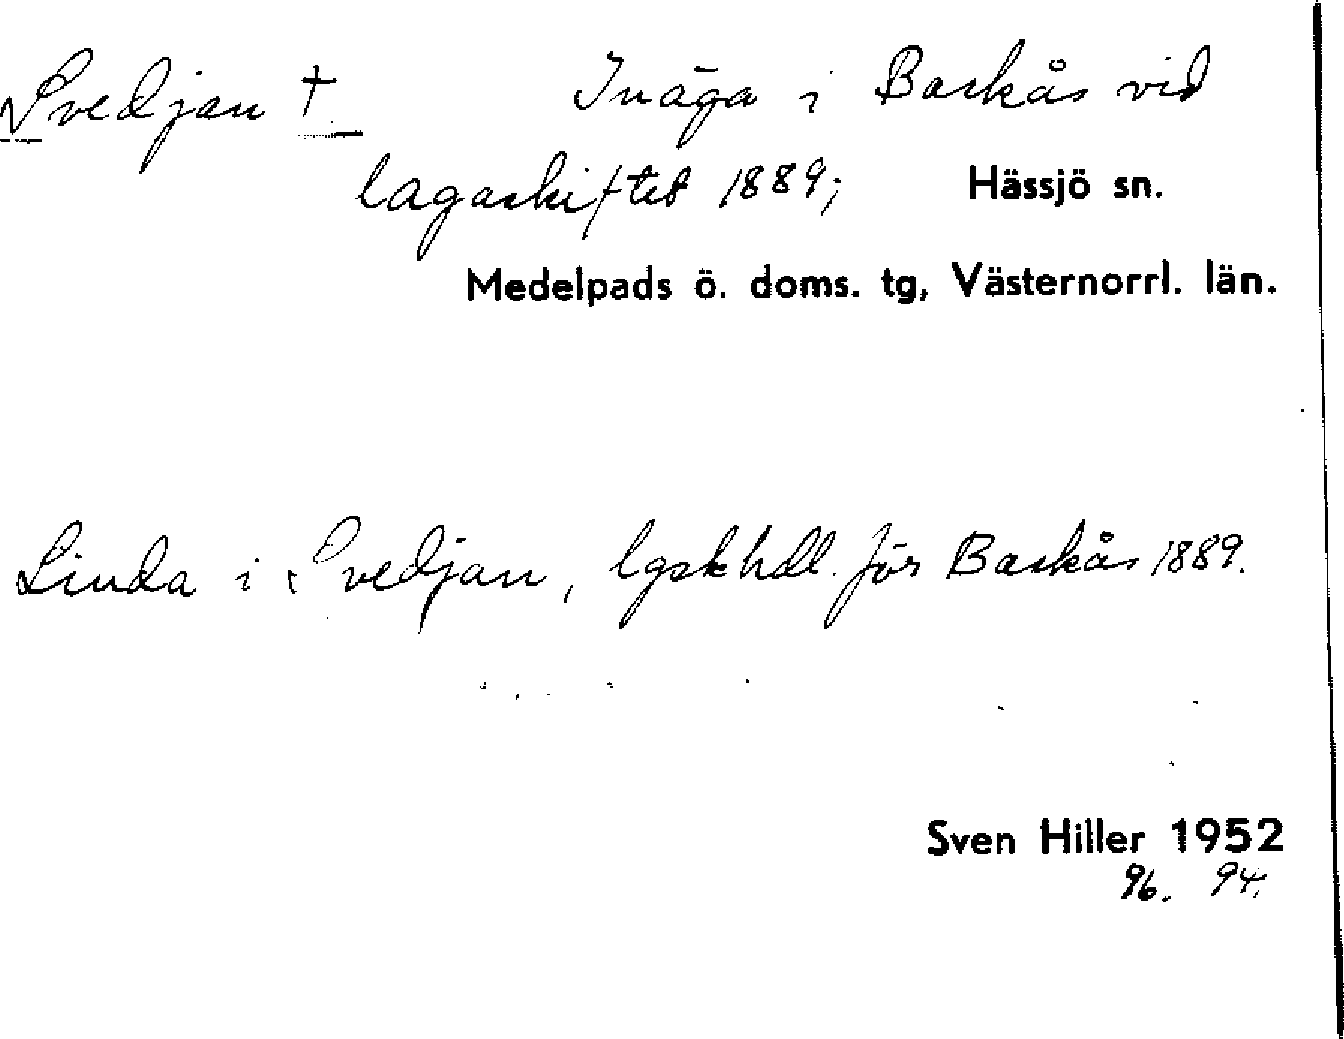 Svedjan † Inäga i Baskås vid
lagaskiftet 1889; Hässjö sn.
Medelpads ö. doms. tg, Västernorrl. län.
Linda i Svedjan, lgskhdl. för Baskås 1889.
Sven Hiller 1952
96. 94.